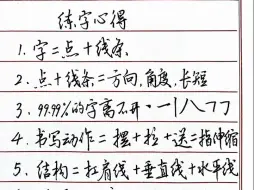 练字心得
1.字=点+线条
2.点+线条=方向,角度,长短
3.99.99%的字离不开丶一丨八㇇丁
4.书写动作=摆+拉+送=指伸缩
5.结构=扛肩线+垂直线+水平线